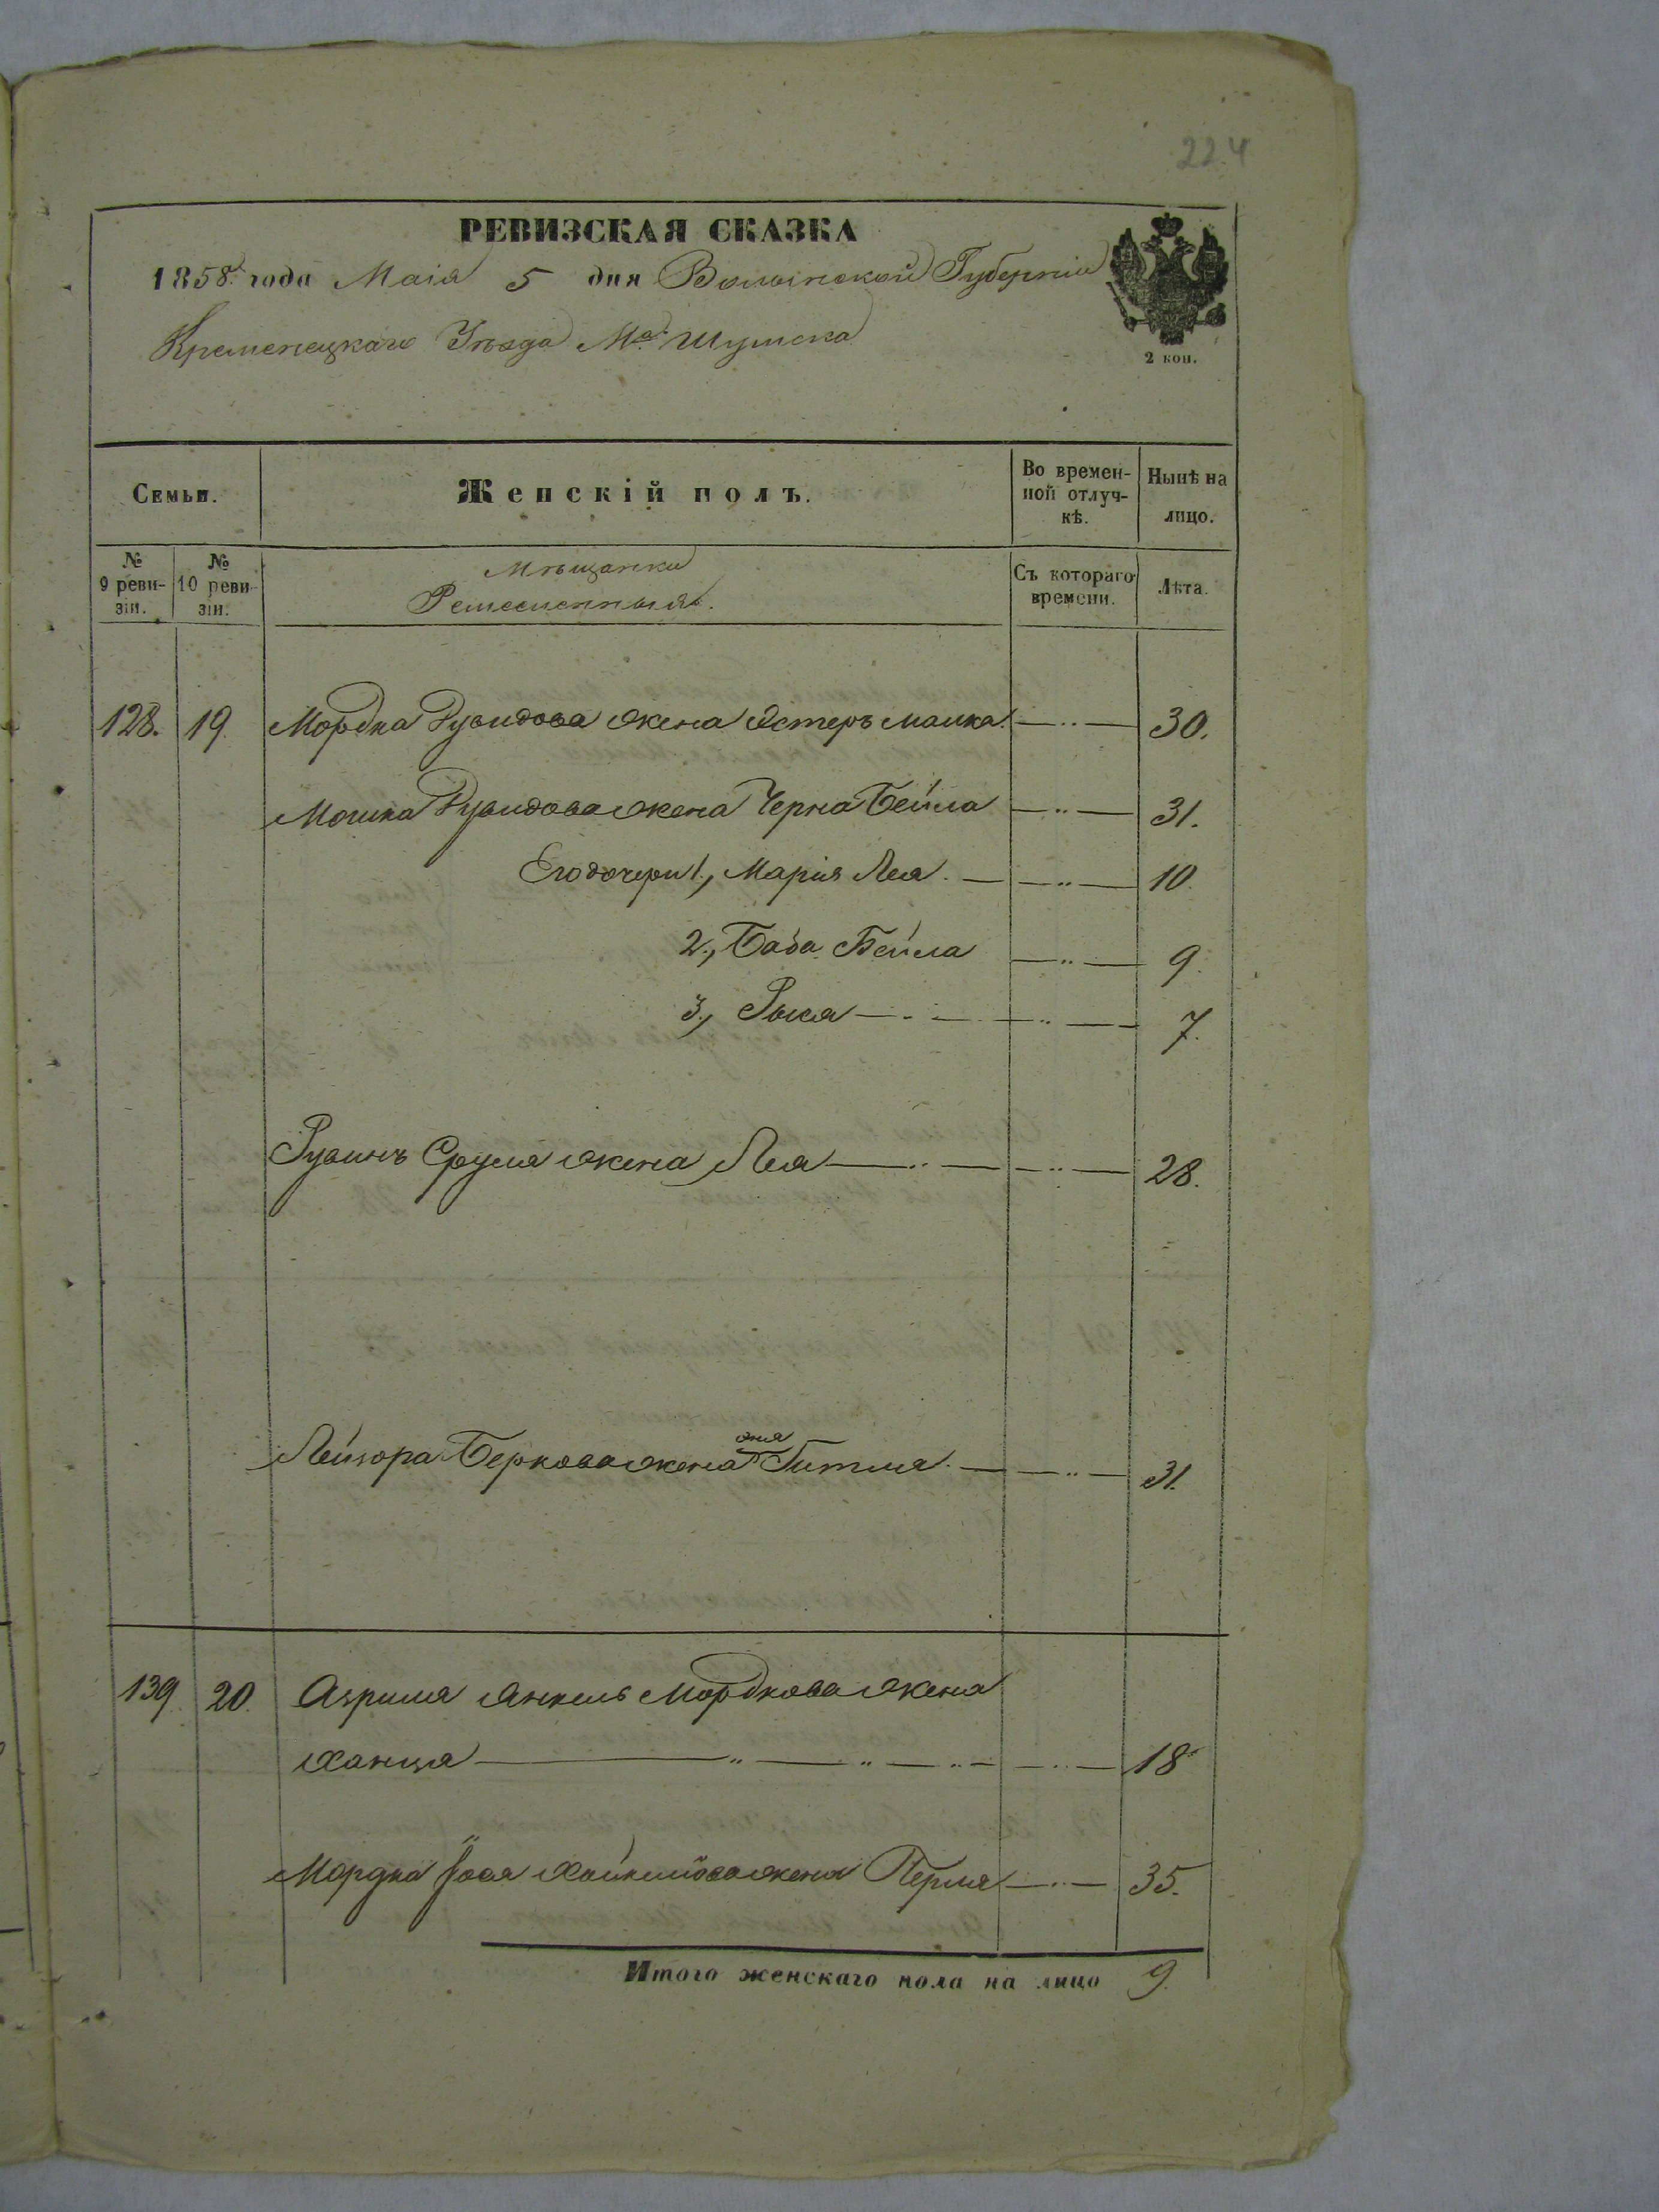 224
РЕВИЗСКАЯ СКАЗКА
1858 года Маія 5 дня Волынской Губерніи
Кременецкаго Уѣзда Мѣ. Шумска
2 коп.
Семьи.
Женскій полъ.
Во времен-
ной отлуч-
кѣ.
Нынѣ на
лицо.
№
9 реви-
зіи.
№
10 реви-
зіи.
Мѣщанки
Ремесленныя.
Съ котораго
времени.
Лѣта.
128. 19. Мордка Рувидова жена Эстеръ Малка 30.
Мошка Рувидова жена Черна Бейла 31.
Его дочери 1, Марія Лея 10.
2, Баба Бейла 9.
3, Рыся 7.
Рувинъ Сруля жена Лея 28.
Лейзора Беркова жена Гитля 31.
139. 20. Азриля Янкель Мордкова жена
Ханця 18
Мордка Хаймова жена Перля 35.
Итого женскаго пола на лицо 9.